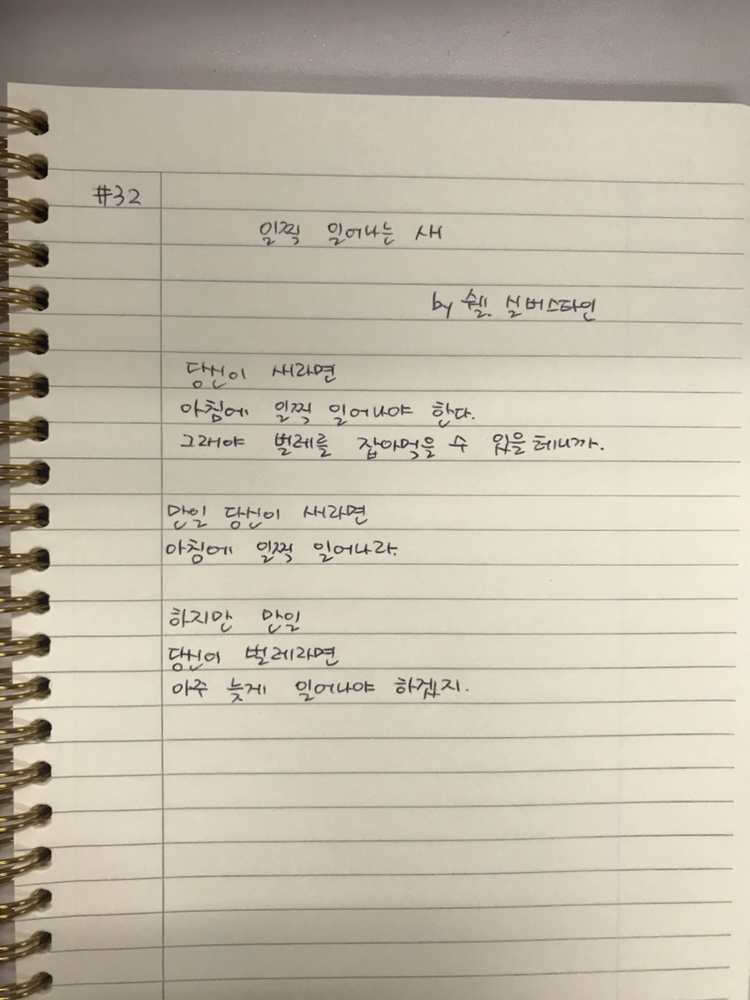 #32
일찍 일어나는 새
by 쉘. 실버스타인
당신이 새라면
아침에 일찍 일어나야 한다.
그래야 벌레를 잡아먹을 수 있을 테니까.
만일 당신이 새라면
아침에 일찍 일어나라.
하지만 만일
당신이 벌레라면
아주 늦게 일어나야 하겠지.